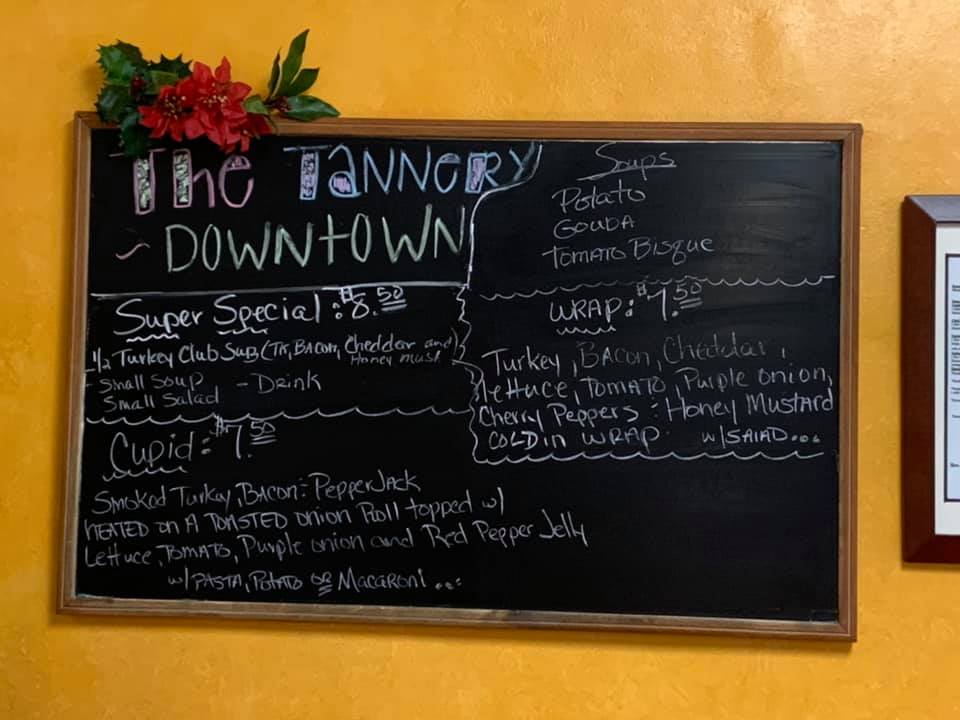 The Tannery
~ Downtown
Super Special: $8.50
1/2 Turkey Club Sub (TK, Bacon, Cheddar and
Honey Must
- Small Soup - Drink
Small Salad
Cupid: $7.50
Smoked Turkey, Bacon : PepperJack
HEATED ON A TOASTED ONION Roll topped w/
Lettuce, TOMATO, Purple onion and Red Pepper Jelly
w/ PASTA, POTATO OR Macaroni...
Soups
Potato
GOUDA
TOMATO BisQue
WRAP: $7.50
Turkey, BACON, Cheddar,
lettuce, TOMATO, Purple onion,
Cherry Peppers : Honey Mustard
COLD in WRAP w/ SALAD...